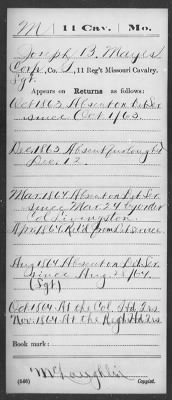 M | 11 Cav. | Mo.
Joseph B. Mayes
Corp., Co. I, 11 Reg't Missouri Cavalry.
Sgt.
Appears on Returns as follows:
Oct 1863 Absent on Det. Ser
since Oct 1/63.
Dec 1863 Absent furloughed
Dec. 12
Mar 1864 Absent on Det Ser
since Mar 24 by order
Col Livingston.
Apr 1864 Retd from Det service
Aug 1864 Absent on Det. Ser.
since Aug 28/64
(Sgt)
Oct 1864 At the Col. Hd Qrs
Nov. 1864 At the Regt Hd Qrs
Book mark:
McLaughlin
(546) Copyist.